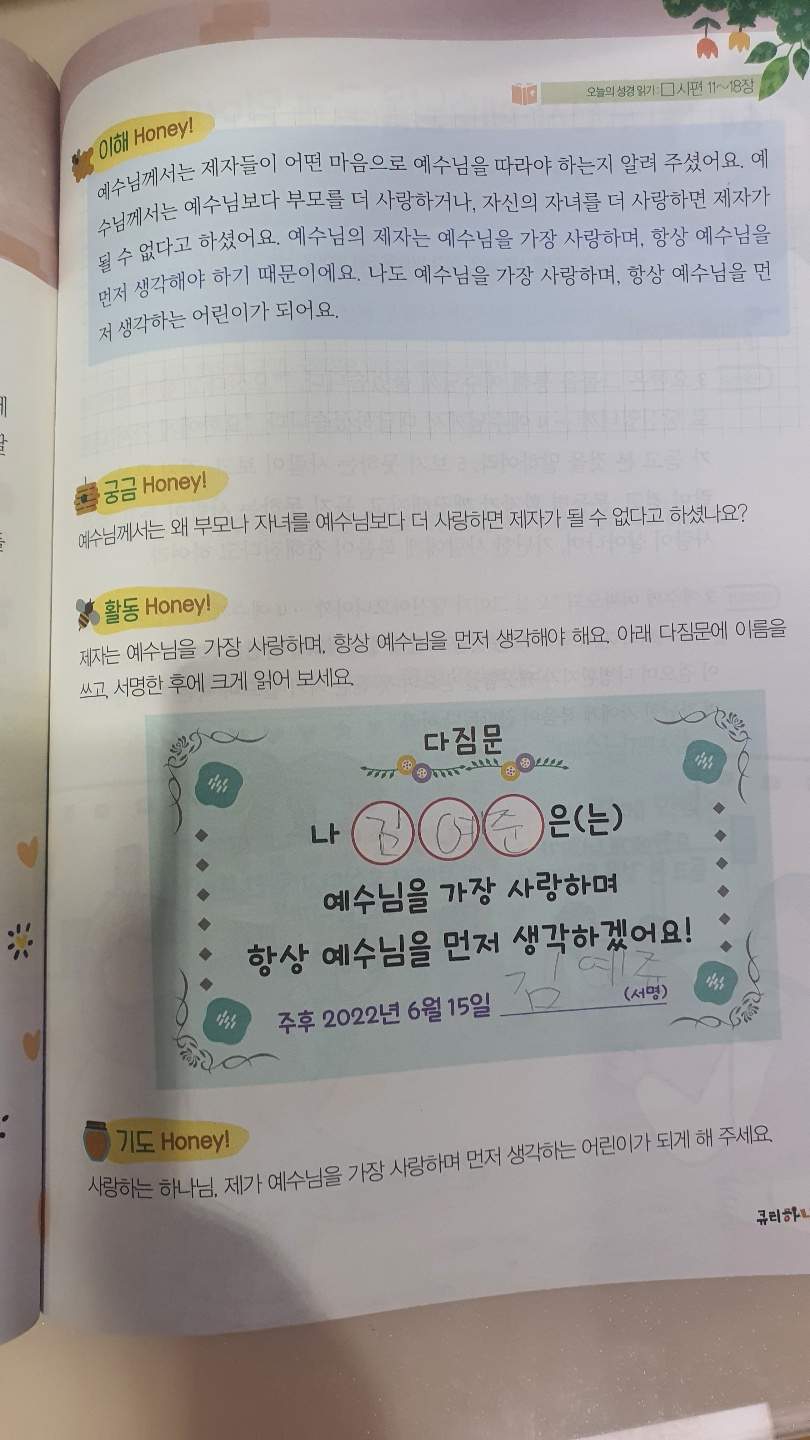 오늘의 성경 읽기 : □ 시편 11~18장
이해 Honey!
예수님께서는 제자들이 어떤 마음으로 예수님을 따라야 하는지 알려 주셨어요. 예
수님께서는 예수님보다 부모를 더 사랑하거나, 자신의 자녀를 더 사랑하면 제자가
될 수 없다고 하셨어요. 예수님의 제자는 예수님을 가장 사랑하며, 항상 예수님을
먼저 생각해야 하기 때문이에요. 나도 예수님을 가장 사랑하며, 항상 예수님을 먼
저 생각하는 어린이가 되어요.
궁금 Honey!
예수님께서는 왜 부모나 자녀를 예수님보다 더 사랑하면 제자가 될 수 없다고 하셨나요?
활동 Honey!
제자는 예수님을 가장 사랑하며, 항상 예수님을 먼저 생각해야 해요. 아래 다짐문에 이름을
쓰고, 서명한 후에 크게 읽어 보세요.
다짐문
나 김 예 준 은(는)
예수님을 가장 사랑하며
항상 예수님을 먼저 생각하겠어요!
주후 2022년 6월 15일 김예준 (서명)
기도 Honey!
사랑하는 하나님, 제가 예수님을 가장 사랑하며 먼저 생각하는 어린이가 되게 해 주세요.